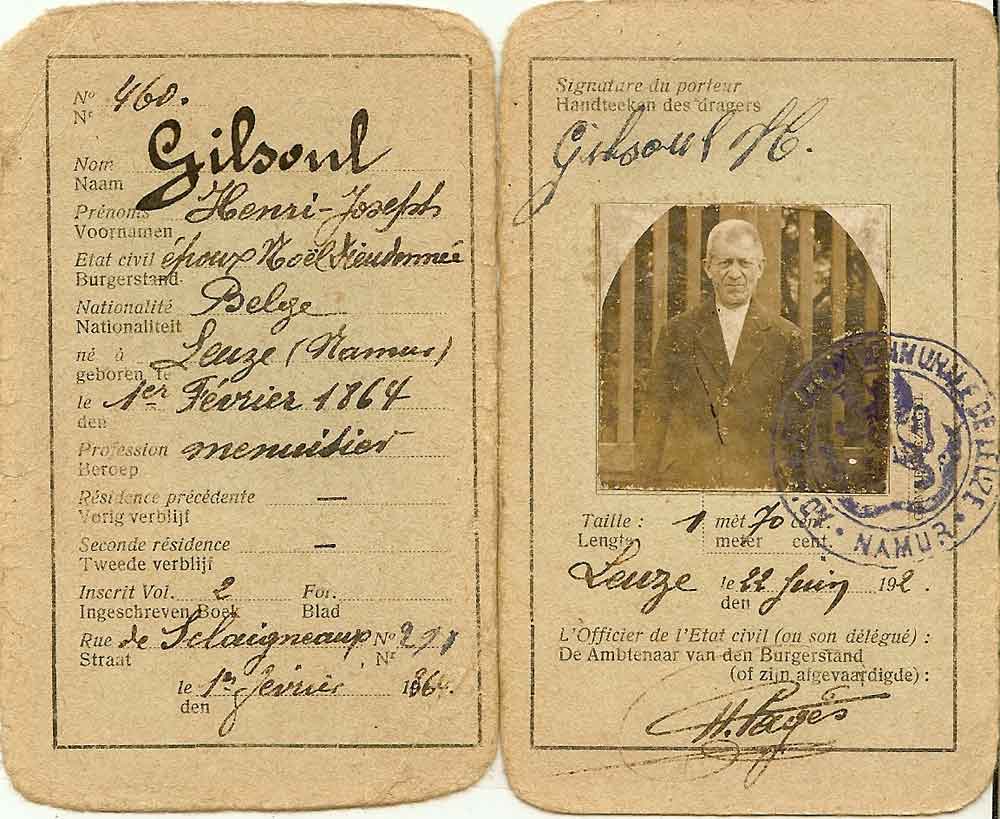 No 460.
Nr
Nom Gilsoul
Naam
Prénoms Henri-Joseph
Voornamen
Etat civil époux Noël Dieudonnée
Burgerstand
Nationalité Belge
Nationaliteit
né à Leuze (Namur)
geboren te
le 1er Février 1864
den
Profession menuisier
Beroep
Résidence précédente —
Vorig verblijf
Seconde résidence —
Tweede verblijf
Inscrit Vol. 2 Fol.
Ingeschreven Boek Blad
Rue de Sclaigneaux No
Straat Nr
le 1er février 1864.
den
Signature du porteur
Handteeken des dragers
Gilsoul H.
Taille : 1 mèt 70 cent.
Lengte meter cent.
Leuze le 22 Juin 192 .
den
L'Officier de l'Etat civil (ou son délégué) :
De Ambtenaar van den Burgerstand
(of zijn afgevaardigde) :
COMMUNALE DE LEUZE
NAMUR